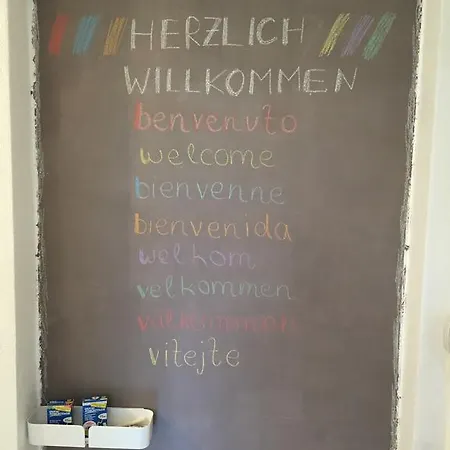 HERZLICH
WILLKOMMEN
benvenuto
welcome
bienvenne
bienvenida
welkom
velkommen
vitejte